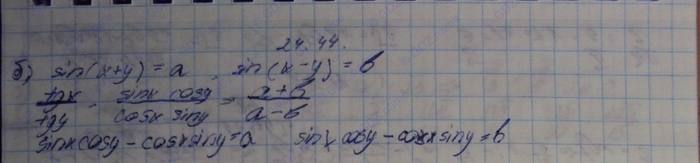 24.44.
б) sin(x+y) = a , sin(x-y) = b
tgx/tgy = sinx cosy/cosx siny = a+b/a-b
sinxcosy - cosxsiny = a sinx cosy - cosxsiny = b